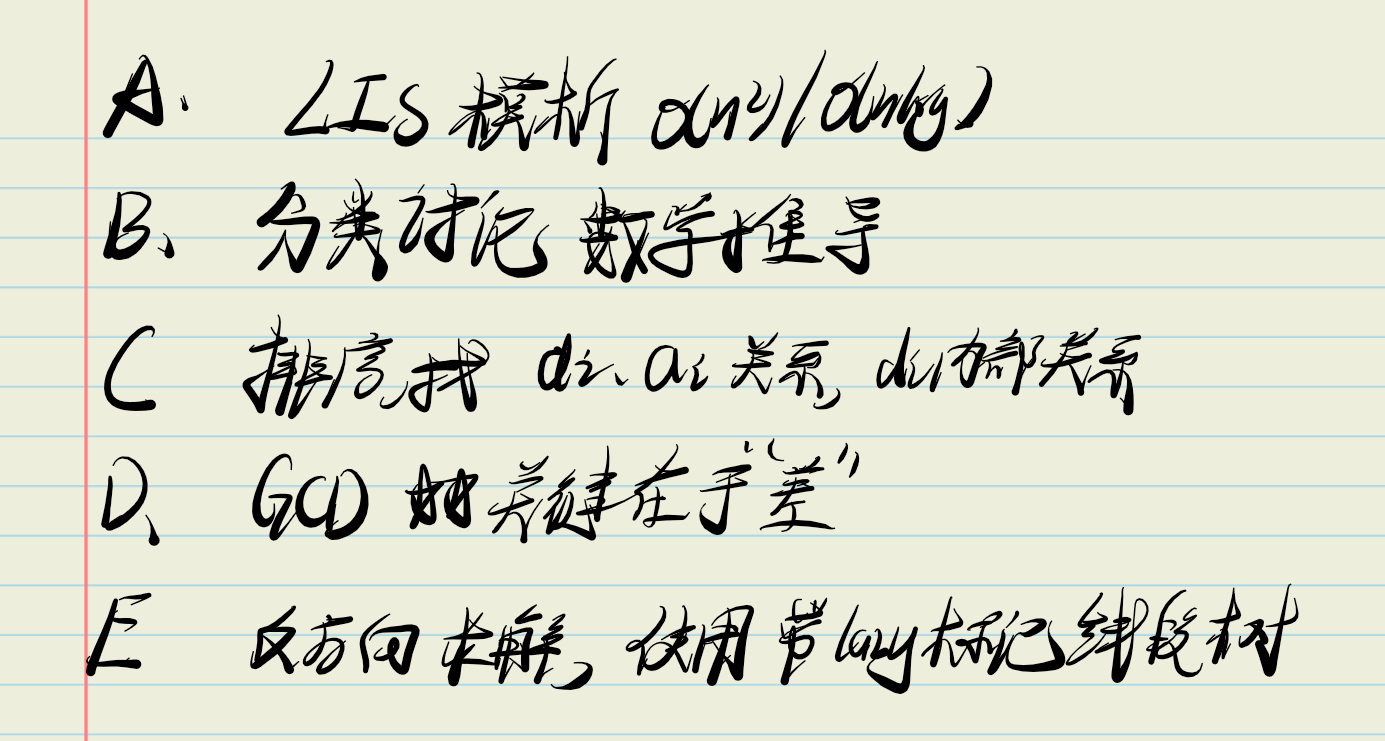 A. LIS 模析 O(n²)/O(nlog)
B、 分类讨论, 数学推导
C 排序,找 di、ai 关系, di内部关系
D、 GCD 的关键在于“差”
E 反方向求解, 使用带lazy标记线段树